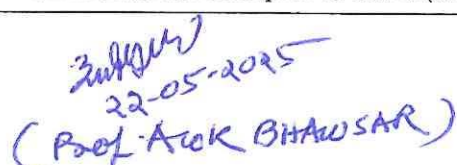 22-05-2025
(Prof. Alok BHAWSAR)